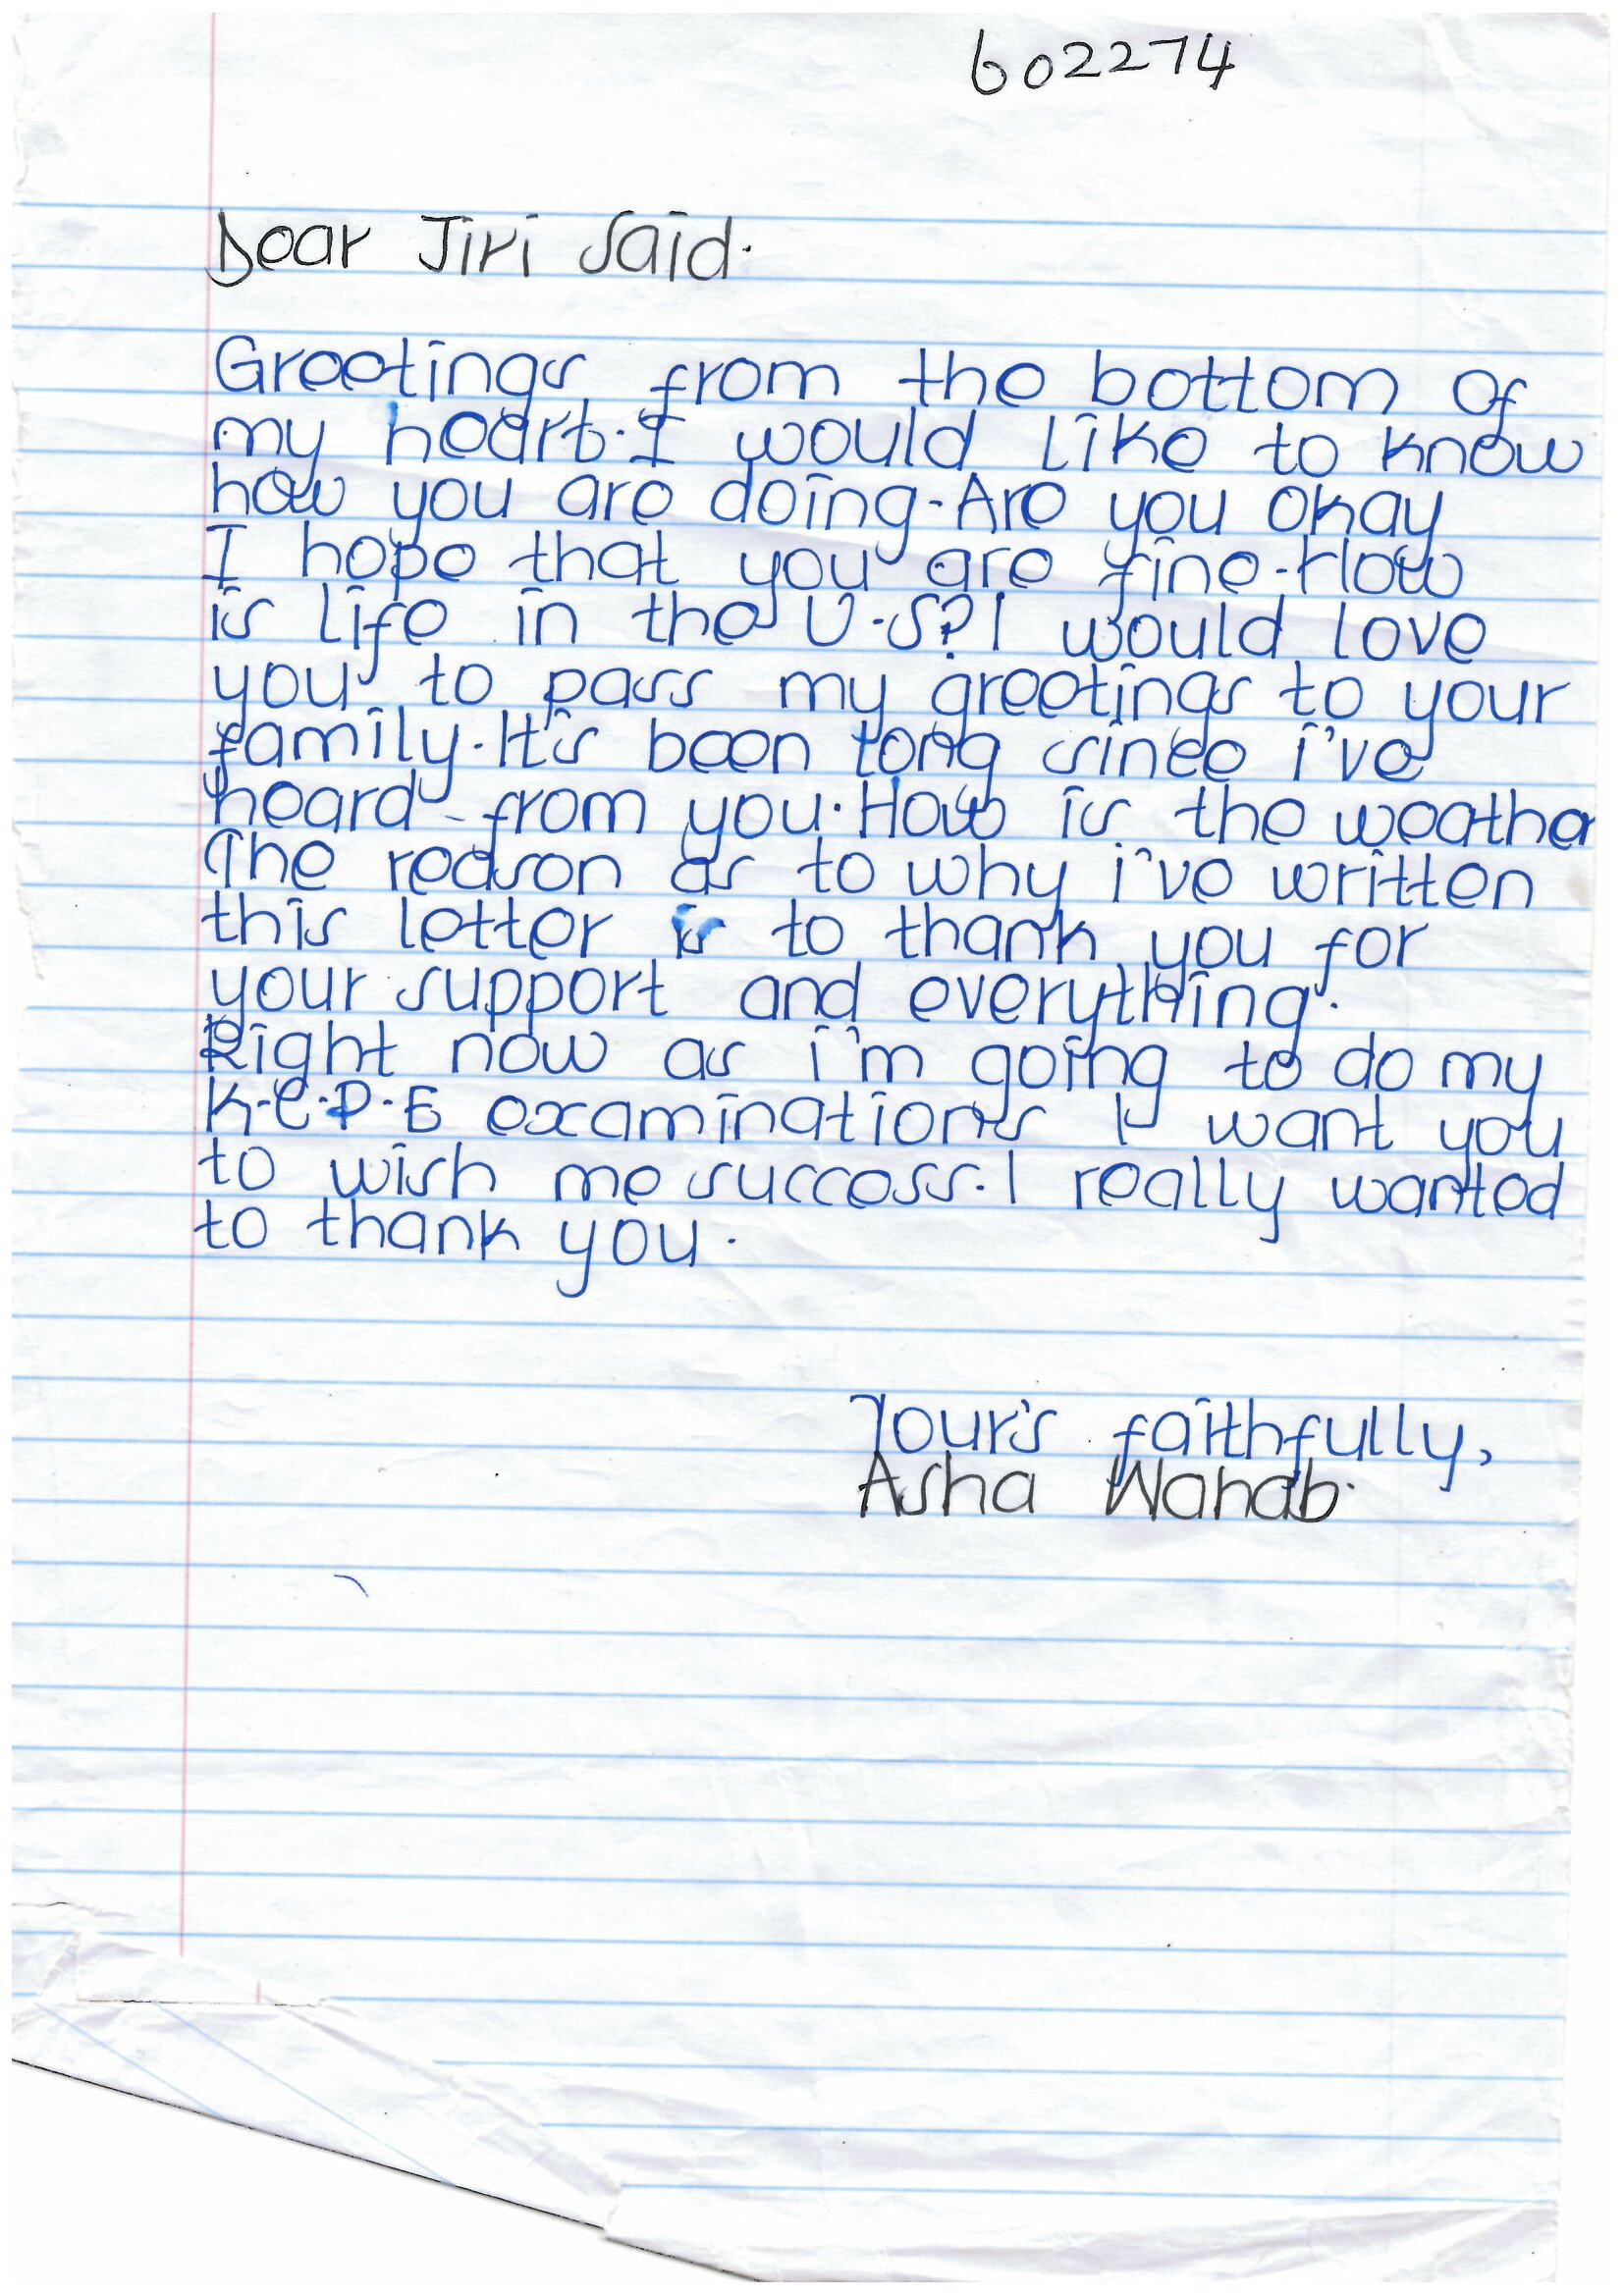 602274
Dear Jiri Said.
Greetings from the bottom of
my heart. I would like to know
how you are doing. Are you okay
I hope that you are fine. How
is life in the U.S? I would love
you to pass my greetings to your
family. It's been long since i've
heard from you. How is the weather
The reason as to why i've written
this letter is to thank you for
your support and everything.
Right now as i'm going to do my
K.C.P.E examinations I want you
to wish me success. I really wanted
to thank you.
Your's faithfully,
Asha Wahab.